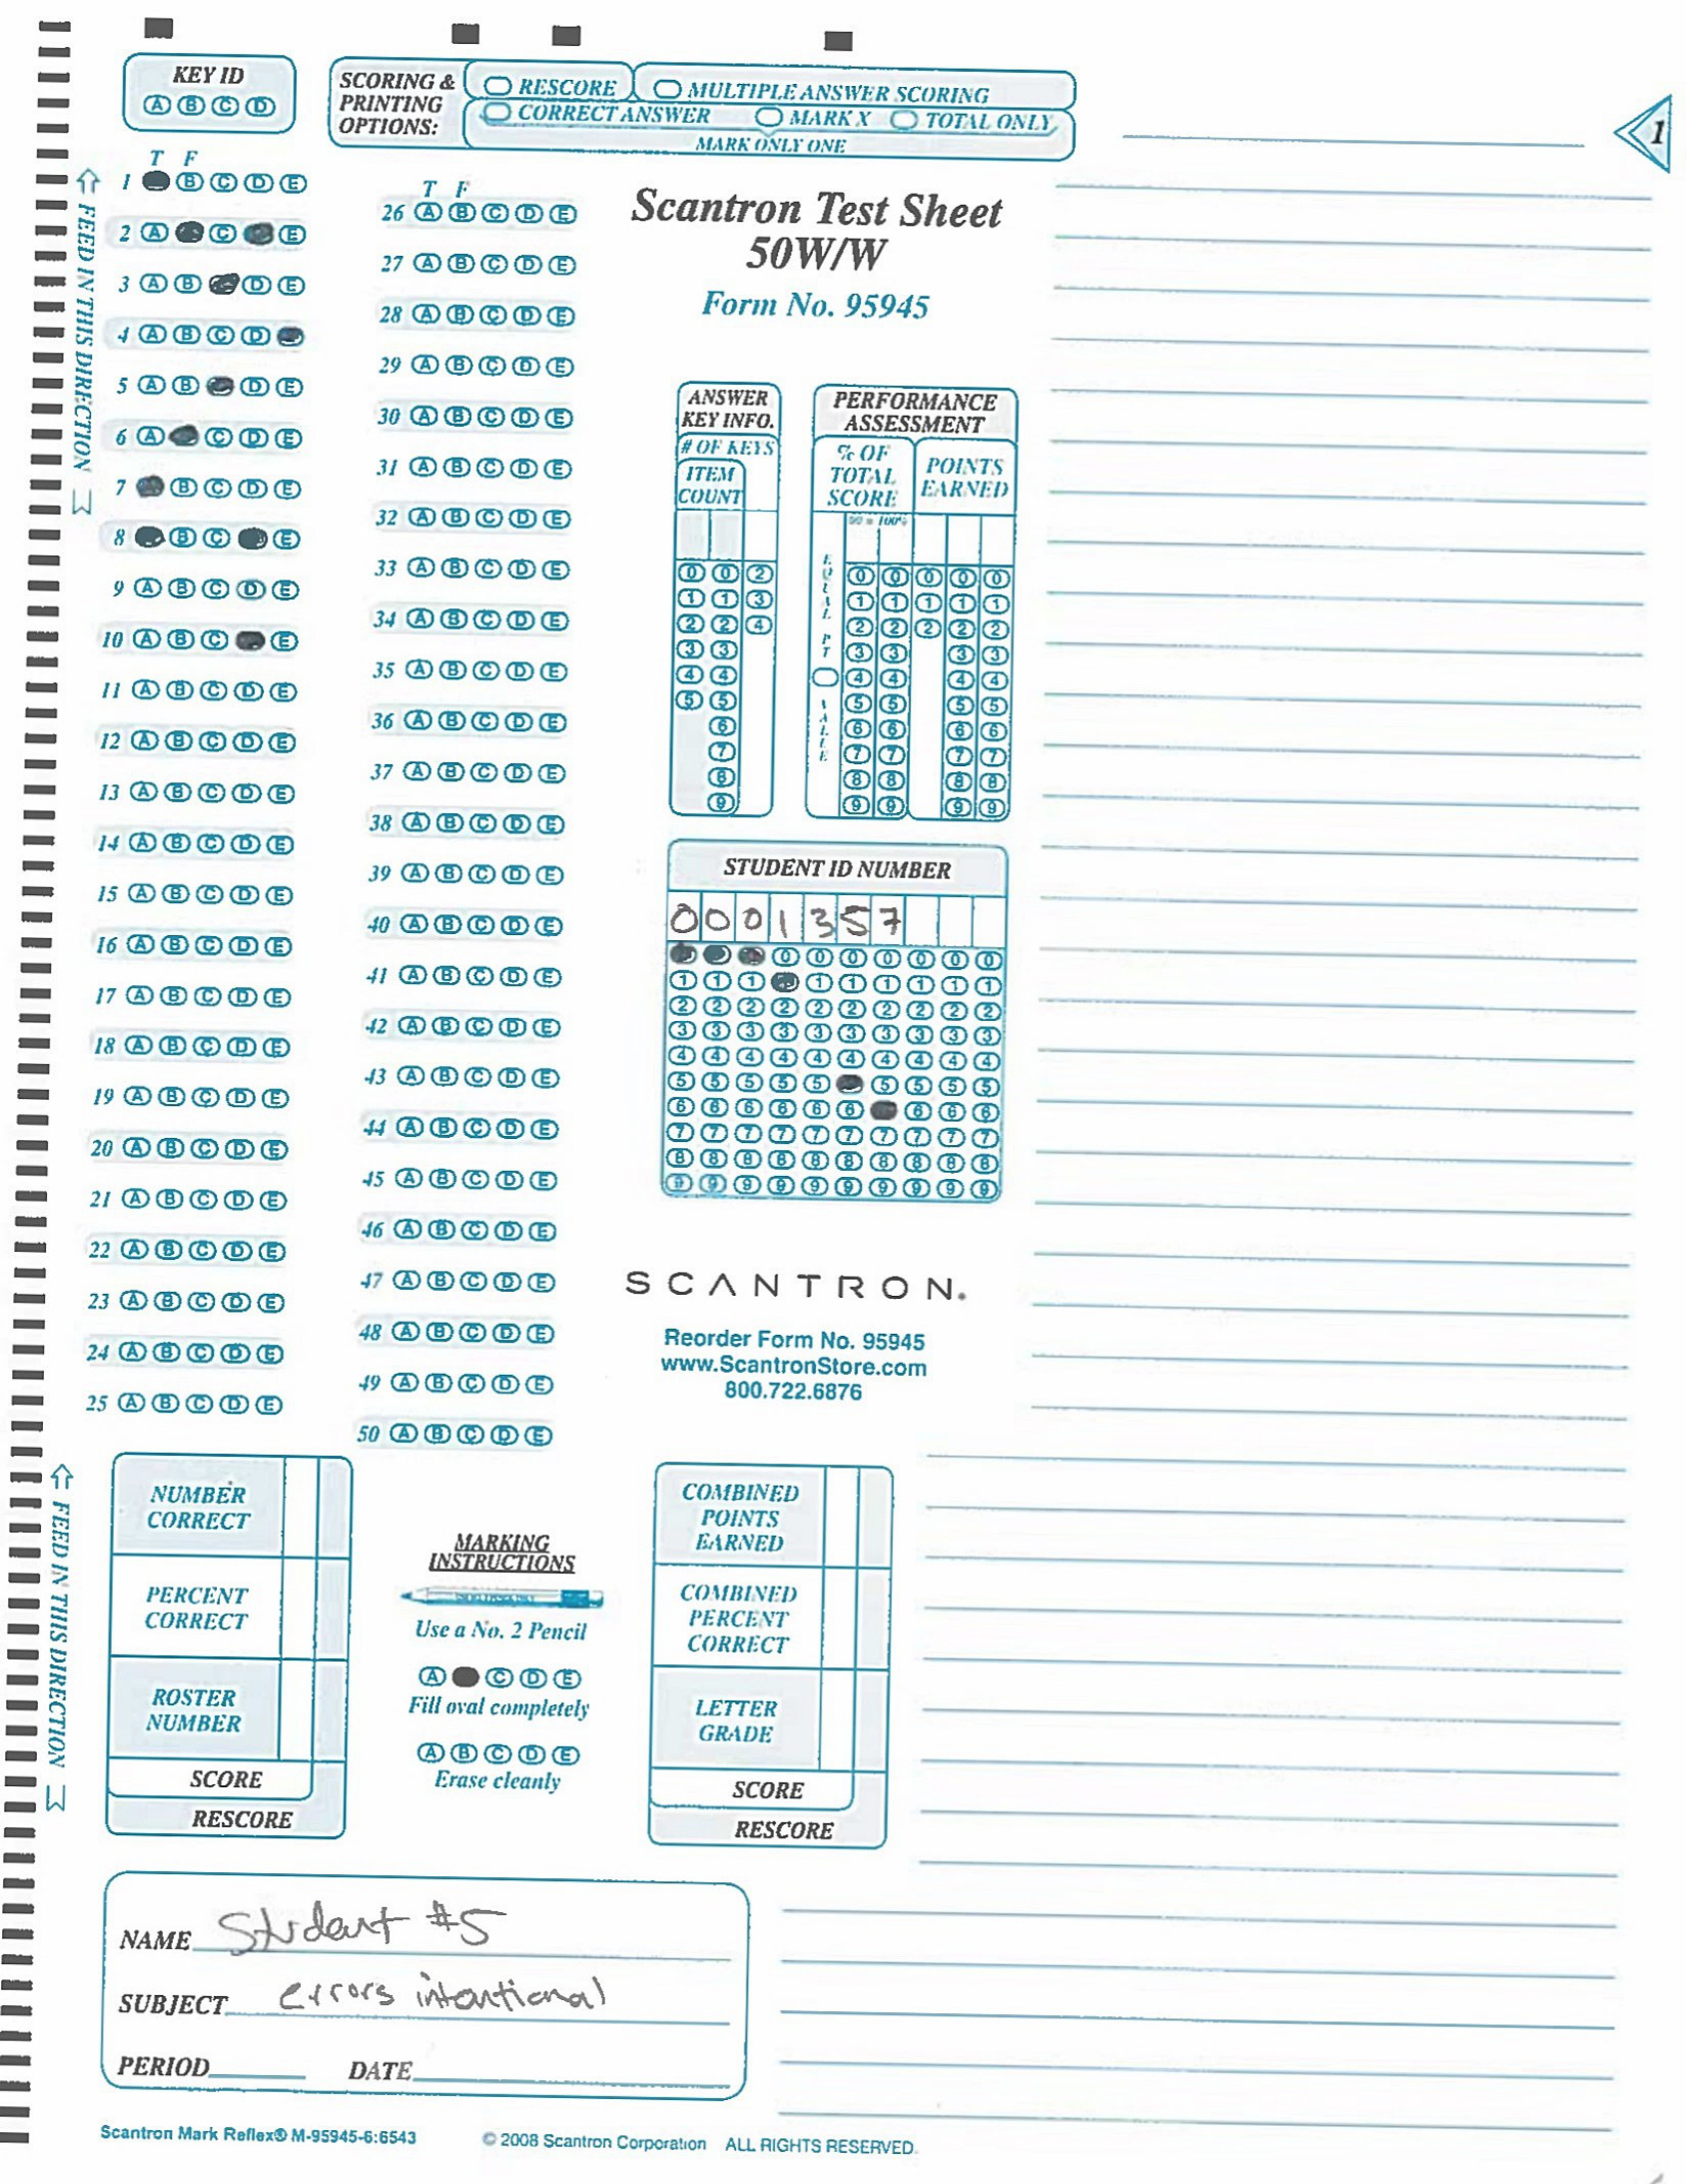 KEY ID
A B C D
SCORING & PRINTING OPTIONS:
RESCORE
MULTIPLE ANSWER SCORING
CORRECT ANSWER
MARK X
TOTAL ONLY
MARK ONLY ONE
1
FEED IN THIS DIRECTION
T F
1 B C D E
2 A C E
3 A B D E
4 A B C D
5 A B D E
6 A C D E
7 B C D E
8 B C E
9 A B C D E
10 A B C E
11 A B C D E
12 A B C D E
13 A B C D E
14 A B C D E
15 A B C D E
16 A B C D E
17 A B C D E
18 A B C D E
19 A B C D E
20 A B C D E
21 A B C D E
22 A B C D E
23 A B C D E
24 A B C D E
25 A B C D E
T F
26 A B C D E
27 A B C D E
28 A B C D E
29 A B C D E
30 A B C D E
31 A B C D E
32 A B C D E
33 A B C D E
34 A B C D E
35 A B C D E
36 A B C D E
37 A B C D E
38 A B C D E
39 A B C D E
40 A B C D E
41 A B C D E
42 A B C D E
43 A B C D E
44 A B C D E
45 A B C D E
46 A B C D E
47 A B C D E
48 A B C D E
49 A B C D E
50 A B C D E
Scantron Test Sheet
50W/W
Form No. 95945
ANSWER
KEY INFO.
# OF KEYS
ITEM
COUNT
0 0 2
1 1 3
2 2 4
3 3
4 4
5 5
6
7
8
9
PERFORMANCE
ASSESSMENT
% OF
TOTAL
SCORE
POINTS
EARNED
00 = 100%
EQUAL PT VALUE
0 0 0 0 0
1 1 1 1 1
2 2 2 2 2
3 3 3 3
4 4 4 4
5 5 5 5
6 6 6 6
7 7 7 7
8 8 8 8
9 9 9 9
STUDENT ID NUMBER
0 0 0 1 3 5 7
0 0 0 0 0 0 0
1 1 1 1 1 1 1 1 1
2 2 2 2 2 2 2 2 2 2
3 3 3 3 3 3 3 3 3 3
4 4 4 4 4 4 4 4 4 4
5 5 5 5 5 5 5 5 5
6 6 6 6 6 6 6 6 6
7 7 7 7 7 7 7 7 7 7
8 8 8 8 8 8 8 8 8 8
9 9 9 9 9 9 9 9 9 9
SCANTRON.
Reorder Form No. 95945
www.ScantronStore.com
800.722.6876
FEED IN THIS DIRECTION
NUMBER
CORRECT
PERCENT
CORRECT
ROSTER
NUMBER
SCORE
RESCORE
MARKING
INSTRUCTIONS
Use a No. 2 Pencil
A C D E
Fill oval completely
A B C D E
Erase cleanly
COMBINED
POINTS
EARNED
COMBINED
PERCENT
CORRECT
LETTER
GRADE
SCORE
RESCORE
NAME Student #5
SUBJECT errors intentional
PERIOD DATE
Scantron Mark Reflex® M-95945-6:6543 © 2008 Scantron Corporation ALL RIGHTS RESERVED.